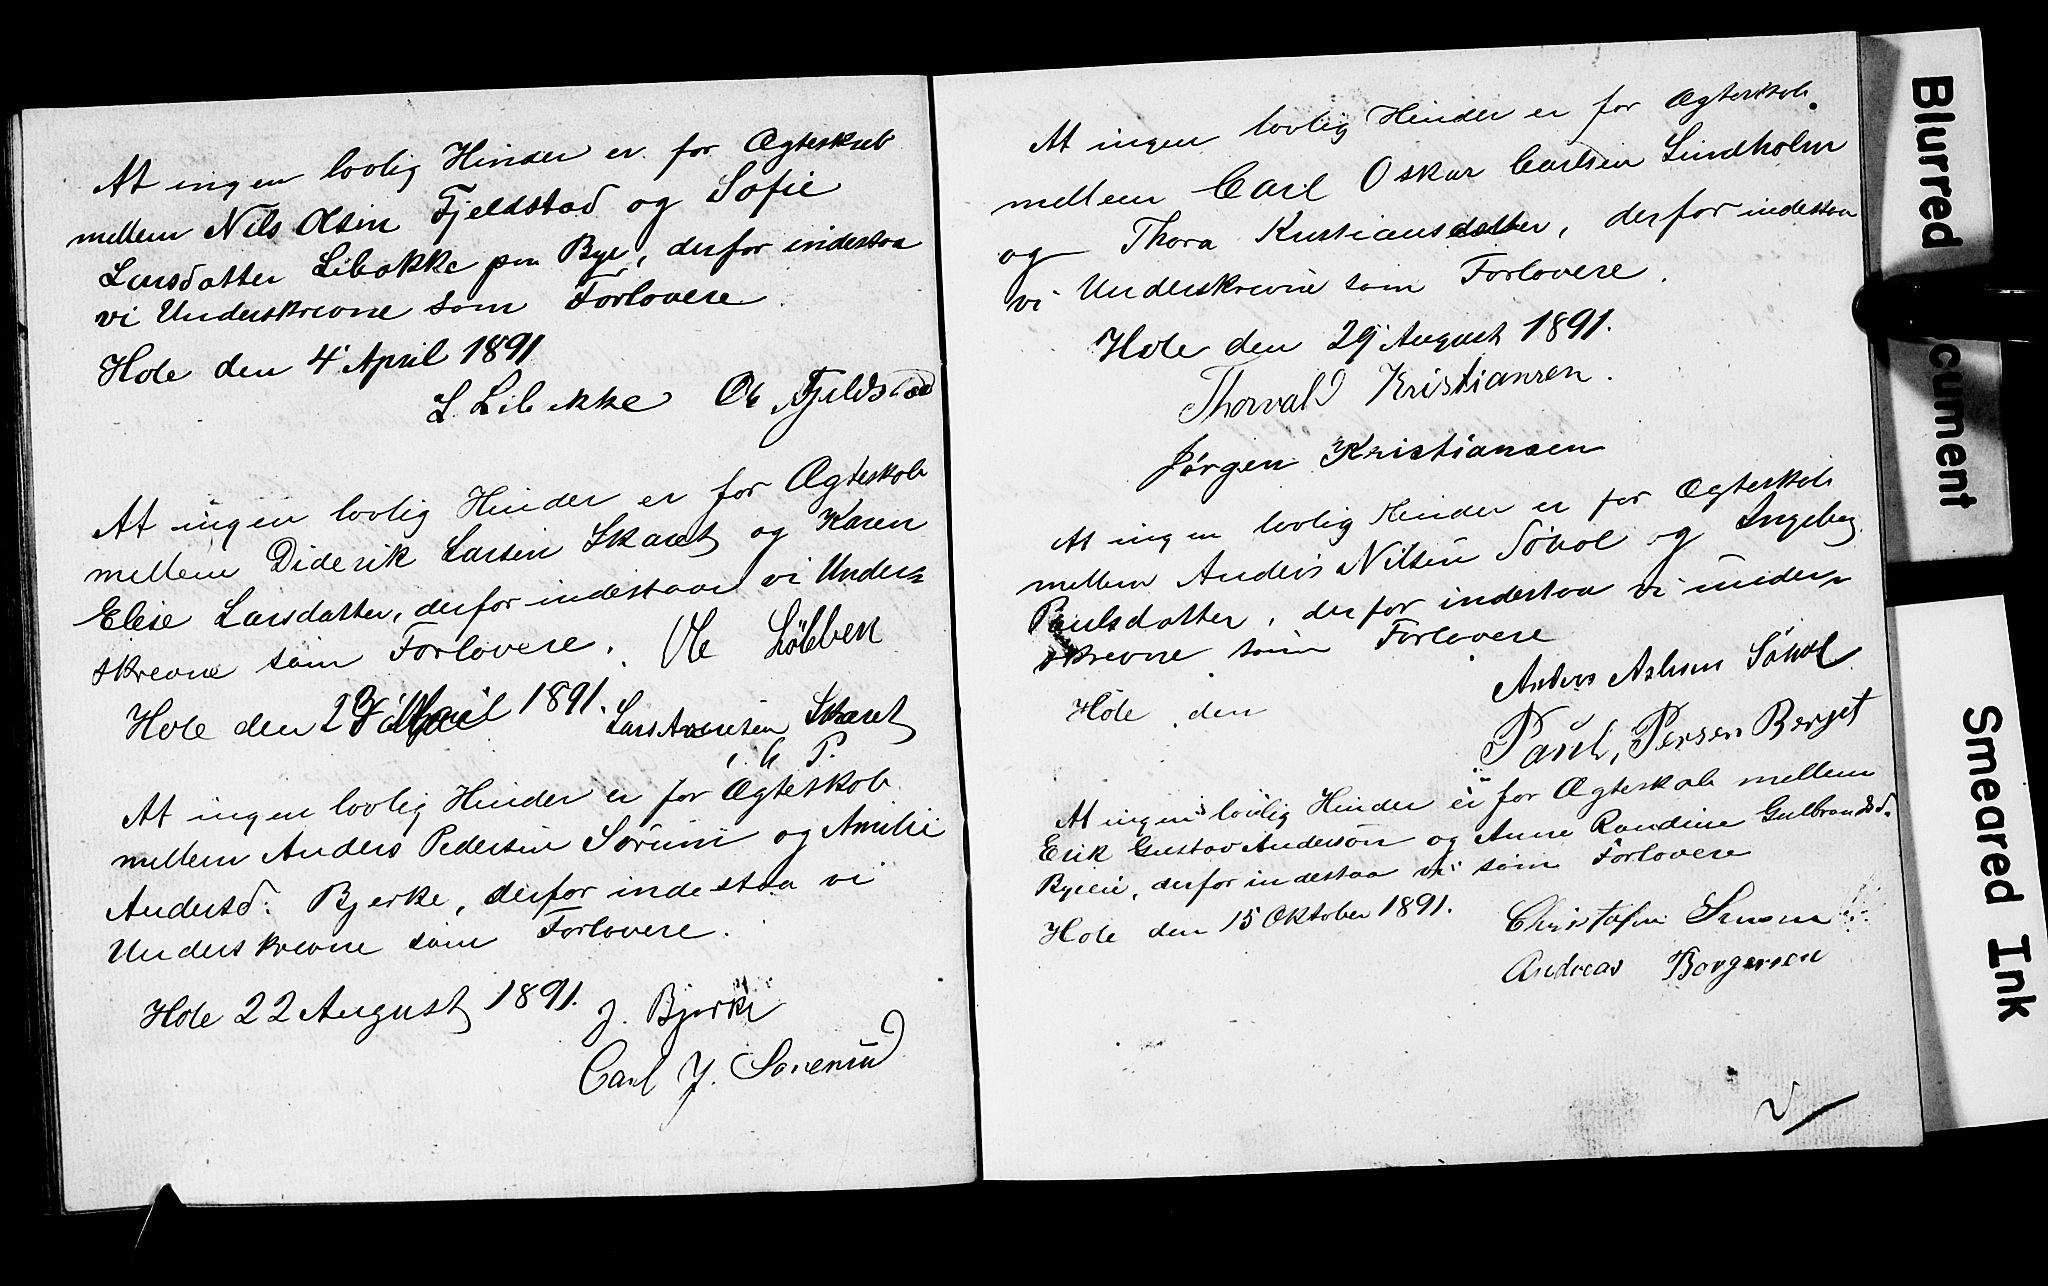 At ingen lovlig Hinder er for Ægteskab
mellem Nils Olsen Fjeldstad og Sofie
Larsdatter Libakke paa Bye, derfor indestaa
vi Underskrevne som Forlovere.
Hole den 4 April 1891
L. Libakke Ole Fjeldstad
At ingen lovlig Hinder er for Ægteskab
mellem Diderik Larsen Skaret og Karen
Elise Larsdatter, derfor indestaar vi Under-
skrevne som Forlovere. Ole Løbben
Hole den 1891. Lars Skaret
At ingen lovlig Hinder er for Ægteskab
mellem Anders Pedersen Sørum og Amilie
Andersd. Bjerke, derfor indestaa vi
Underskrevne som Forlovere.
Hole 22 August 1891. J. Bjerke
Carl J.
At ingen lovlig Hinder er for Ægteskab
mellem Carl Oskar Carlsen Lindholm
og Thora Kristiansdatter, derfor indestaa
vi Underskrevne som Forlovere.
Hole den 29 August 1891.
Thorvald Kristiansen.
Jørgen Kristiansen
At ingen lovlig Hinder er for Ægteskab
mellem Anders Nilsen Søhol og Ingebog
Paulsdatter, derfor indestaa vi under-
skrevne som Forlovere
Anders Søhol
Hole den
Paul Persen Berget
At ingen lovlig Hinder er for Ægteskab mellem
Erik Gustav Anderson og Anne Randine Gulbrandsd.
Byeie, derfor indestaa vi som Forlovere
Hole den 15 Oktober 1891. Christofer
Andreas Borgersen
Blurred
cument
Smeared Ink